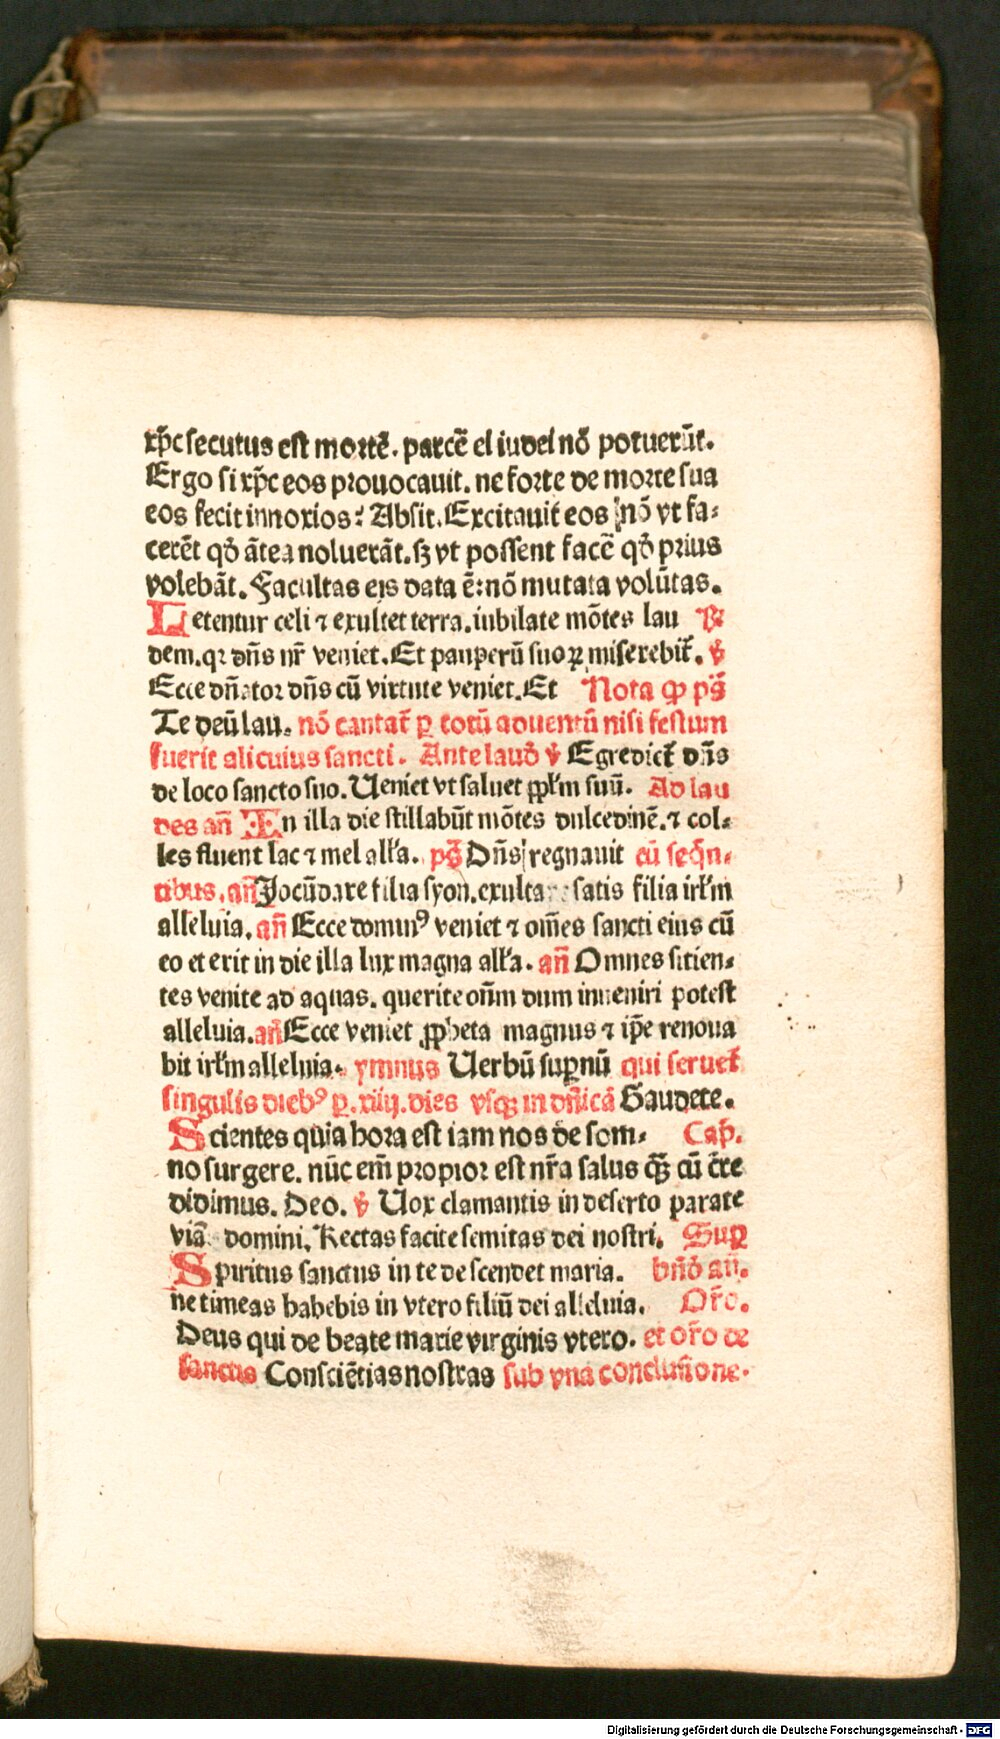 xp̄c secutus est mortē. parcē ei iudei nō potuerūt.
Ergo si xp̄c eos prouocauit. ne forte de morte sua
eos fecit innoxios: Absit. Excitauit eos nō vt fa⸗
cerēt qđ ātea noluerāt. sꝫ vt possent facē qđ prius
volebāt. Facultas eis data ē: nō mutata volūtas.
Letentur celi ⁊ exultet terra. iubilate mōtes lau ℟
dem. qꝛ dn̄s nr̄ veniet. Et pauperū suoꝝ miserebit̄. ℣
Ecce dn̄ator dn̄s cū virtute veniet. Et Nota ꝙ pꝰ̄
Te deū lau. nō cantat̄ ꝑ totū aduentū nisi festum
fuerit alicuius sancti. Ante laud̄ ℣ Egrediet̄ dn̄s
de loco sancto suo. Ueniet vt saluet ppl̄m suū. Ad lau
des an̄ In illa die stillabūt mōtes dulcedinē. ⁊ col⸗
les fluent lac ⁊ mel all̄a. pꝰ̄ Dn̄s regnauit cū seq̄n⸗
tibus. an̄ Jocūdare filia syon. exulta satis filia irl̄m
alleluia. an̄ Ecce dominꝰ veniet ⁊ om̄es sancti eius cū
eo et erit in die illa lux magna all̄a. an̄ Omnes sitien⸗
tes venite ad aquas. querite dn̄m dum inueniri potest
alleluia. an̄ Ecce veniet ꝓpheta magnus ⁊ ip̄e renoua
bit irl̄m alleluia. ymnus Uerbū suꝑnū qui seruet̄
singulis diebꝰ ꝑ. xiiij. dies vsqꝫ in dn̄icā Gaudete.
Scientes quia hora est iam nos de som⸗ Cap̄.
no surgere. nūc em̄ propior est nr̄a salus qꝫ̄ cū c̄re
didimus. Deo. ℣ Uox clamantis in deserto parate
viā domini. Rectas facite semitas dei nostri. Suꝑ
Spiritus sanctus in te descendet maria. bn̄d̄ an̄.
ne timeas habebis in vtero filiū dei alleluia. Or̄o.
Deus qui de beate marie virginis vtero. et or̄o de
sanctus Consciētias nostras sub vna conclusione.
Digitalisierung gefördert durch die Deutsche Forschungsgemeinschaft - DFG